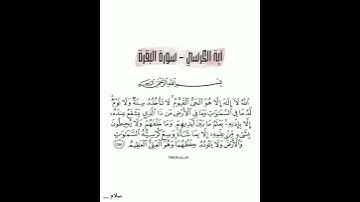 آية الكرسي - سورة البقرة
بِسْمِ اللَّهِ الرَّحْمَٰنِ الرَّحِيمِ
اللَّهُ لَا إِلَٰهَ إِلَّا هُوَ الْحَيُّ الْقَيُّومُ ۚ لَا تَأْخُذُهُ سِنَةٌ وَلَا نَوْمٌ ۚ
لَّهُ مَا فِي السَّمَاوَاتِ وَمَا فِي الْأَرْضِ ۗ مَن ذَا الَّذِي يَشْفَعُ عِندَهُ
إِلَّا بِإِذْنِهِ ۚ يَعْلَمُ مَا بَيْنَ أَيْدِيهِمْ وَمَا خَلْفَهُمْ ۖ وَلَا يُحِيطُونَ
بِشَيْءٍ مِّنْ عِلْمِهِ إِلَّا بِمَا شَاءَ ۚ وَسِعَ كُرْسِيُّهُ السَّمَاوَاتِ
وَالْأَرْضَ ۖ وَلَا يَئُودُهُ حِفْظُهُمَا ۚ وَهُوَ الْعَلِيُّ الْعَظِيمُ ﴿٢٥٥﴾
سلام ...